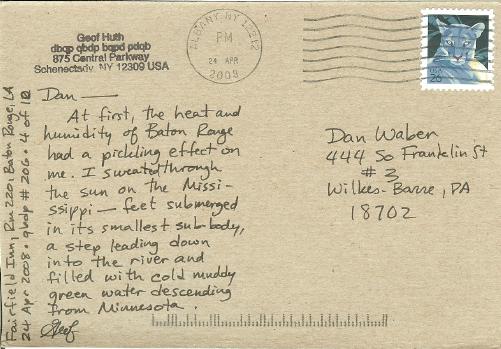 Geof Huth
dbqp qbdp bqpd pdqb
875 Central Parkway
Schenectady, NY 12309 USA
ALBANY NY
PM
24 APR
2008
Dan —
At first, the heat and
humidity of Baton Rouge
had a pickling effect on
me. I sweated through
the sun on the Missi-
ssippi — feet submerged
in its smallest sub-body,
a step leading down
into the river and
filled with cold muddy
green water descending
from Minnesota.
Geof
Fairfield Inn, Rm 220, Baton Rouge, LA
24 Apr 2008 • qbdp # 206 • 4 of 10
Dan Waber
444 So Franklin St
# 3
Wilkes-Barre, PA
18702